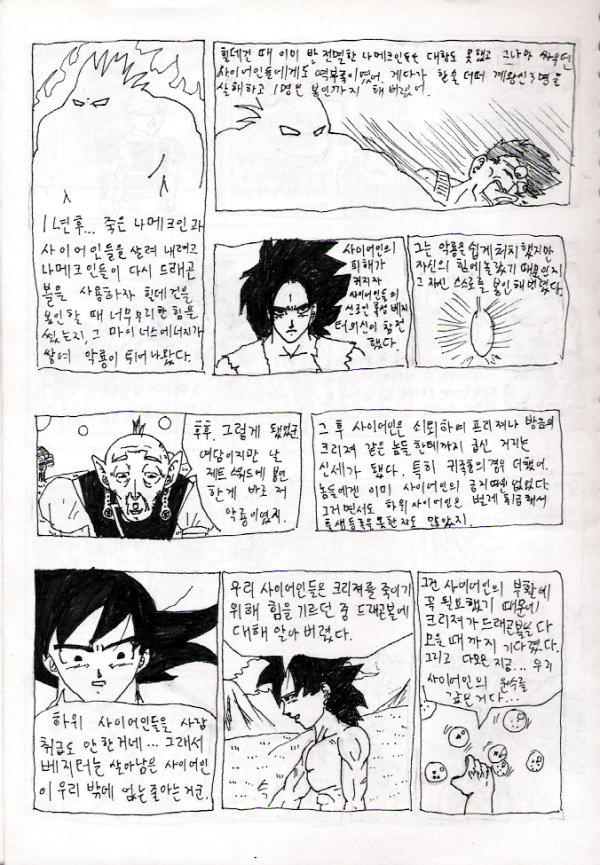 11년후... 죽은 나메크인과
사이어인들을 살려 내려고
나메크인들이 다시 드래곤
볼을 사용하자 힐데건을
봉인할 때 너무 무리한 힘을
썼는지, 그 마이너스에너지가
쌓여 악룡이 튀어나왔다.
힐데건 때 이미 반 전멸한 나메크인들은 대항도 못했고 그나마 싸우던
사이어인들에게도 역부족이였어. 게다가 한술 더 떠 계왕신 3명을
살해하고 1명은 봉인까지 해 버렸어.
사이어인의
피해가
커지자
사이어인들의
신로인 혹성 베지
터의 신이 참전
했다.
그는 악룡은 쉽게 처치했지만
자신의 힘에 놀랐기 때문인지
그 자신 스스로를 봉인해 버렸다.
후후. 그렇게 됐었군.
여담이지만 날
제트 소드에 봉인
한게 바로 저
악룡이였지.
그 후 사이어인은 쇠퇴하여 프리져나 방금의
크리져 같은 놈들 한테까지 굽신 거리는
신세가 됐다. 특히 귀족들의 경우 더했어.
놈들에겐 이미 사이어인의 긍지 따윈 없었다.
그러면서도 하위 사이어인은 벌레 취급해서
출생등록을 못한 자도 많았지.
하위 사이어인들을 사람
취급도 안 한거네... 그래서
베지터는 살아남은 사이어인
이 우리 밖에 없는 줄 아는거군.
우리 사이어인들은 크리져를 죽이기
위해 힘을 기르던 중 드래곤볼에
대해 알아 버렸다.
그건 사이어인의 부활에
꼭 필요했기 때문에
크리져가 드래곤볼을 다
모을 때까지 기다렸다.
그리고 다 모은 지금... 우리
사이어인의 원수를
갚은 거다...